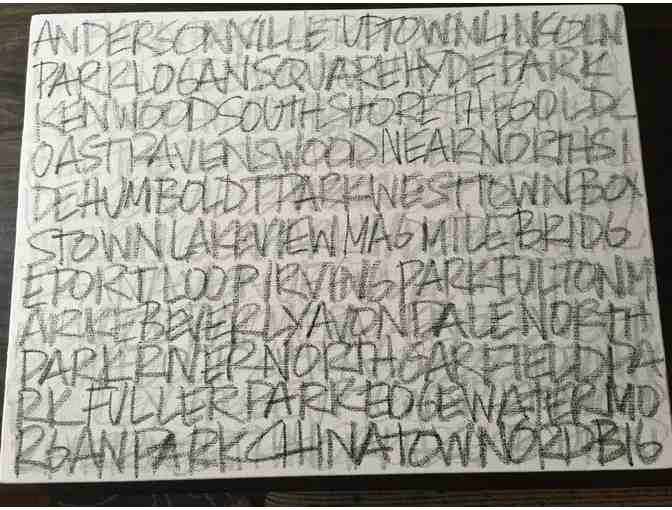 ANDERSONVILLEUPTOWNLINCOLN
PARKLOGANSQUAREHYDEPARK
KENWOODSOUTHSHORETHEGOLDC
OASTRAVENSWOODNEARNORTHSI
DEHUMBOLDTPARKWESTTOWNBOY
STOWNLAKEVIEWMAGMILEBRIDG
EPORTLOOPIRVINGPARKFULTONM
ARKEBEVERLYAVONDALENORTH
PARKRIVERNORTHGARFIELDPA
RKFULLERPARKEDGEWATERMO
RGANPARKCHINATOWNORDBIG